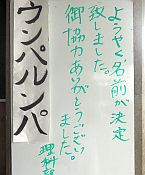 ようやく名前が決定
致しました。
御協力ありがとうござい
ました。
理科
ウンパルンパ